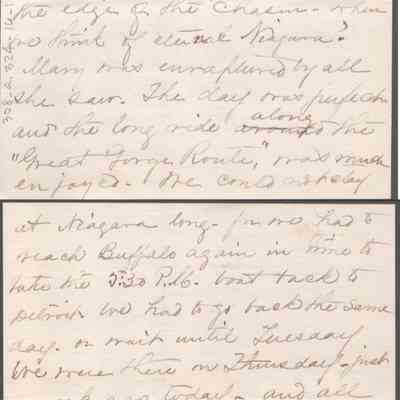 the edge of the Chasm - when
we think of eternal Niagara?
Mary was enraptured by all
she saw. The day was perfect
and the long ride around along the
"Great Gorge Route," was much
enjoyed. We could not stay
at Niagara long - for we had to
reach Buffalo again in time to
take the 5:30 P.M. boat back to
Detroit. We had to go back the same
day - or wait until Tuesday
We were there on Thursday - just
ago today - and all